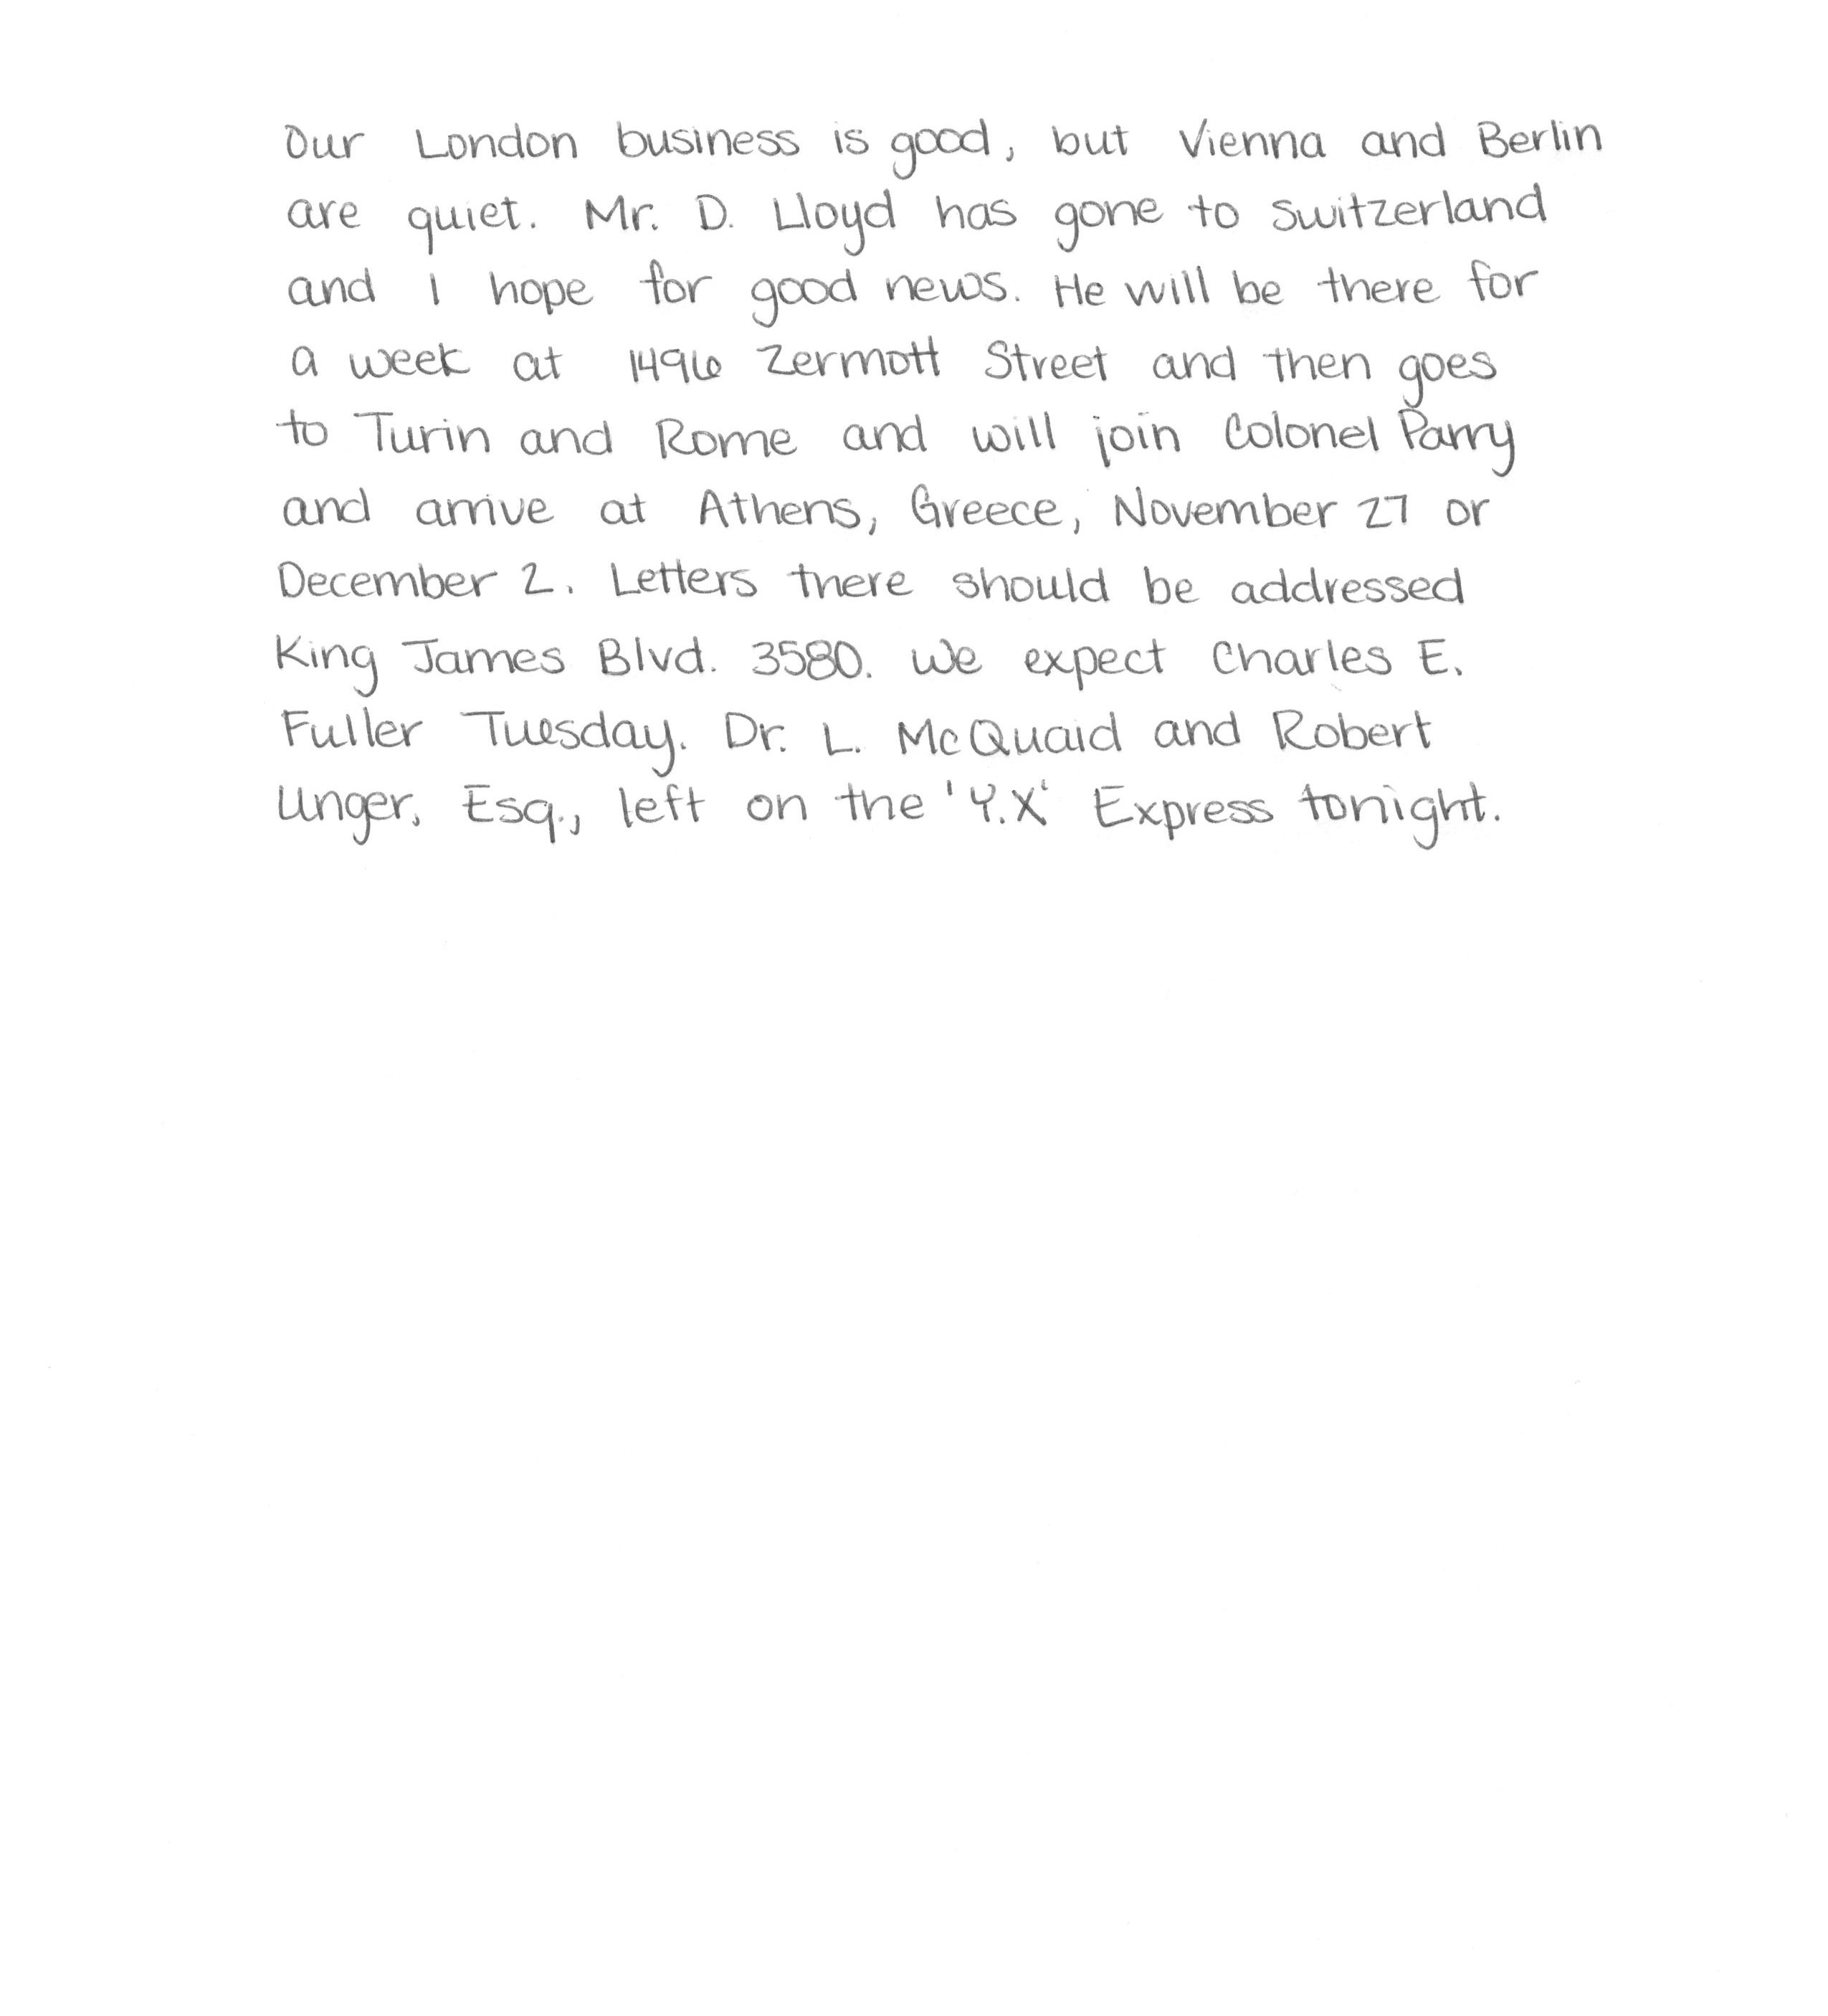 Our London business is good, but Vienna and Berlin
are quiet. Mr. D. Lloyd has gone to Switzerland
and I hope for good news. He will be there for
a week at 1496 Zermott Street and then goes
to Turin and Rome and will join Colonel Parry
and arrive at Athens, Greece, November 27 or
December 2. Letters there should be addressed
King James Blvd. 3580. We expect Charles E.
Fuller Tuesday. Dr. L. McQuaid and Robert
Unger, Esq., left on the 'Y.X' Express tonight.